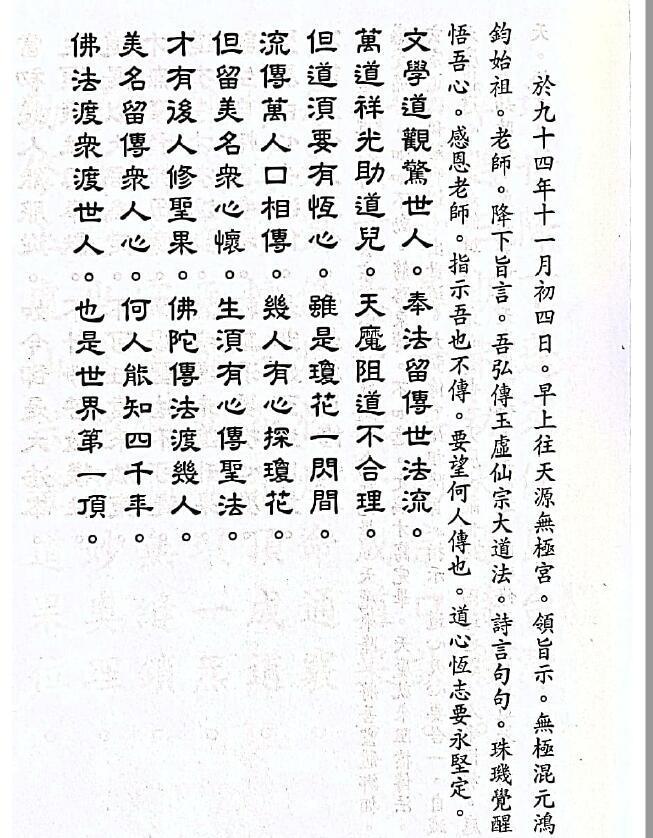 於九十四年十一月初四日。早上往天源無極宮。領旨示。無極混元鴻
鈞始祖。老師。降下旨言。吾弘傳玉虛仙宗大道法。詩言句句。珠璣覺醒
悟吾心。感恩老師。指示吾也不傳。要望何人傳也。道心恆志要永堅定。
文學道觀驚世人。奉法留傳世法流。
萬道祥光助道兒。天魔阻道不合理。
但道須要有恆心。雖是瓊花一閃間。
流傳萬人口相傳。幾人有心探瓊花。
但留美名衆心懷。生須有心傳聖法。
才有後人修聖果。佛陀傳法渡幾人。
美名留傳衆人心。何人能知四千年。
佛法渡衆渡世人。也是世界第一頂。